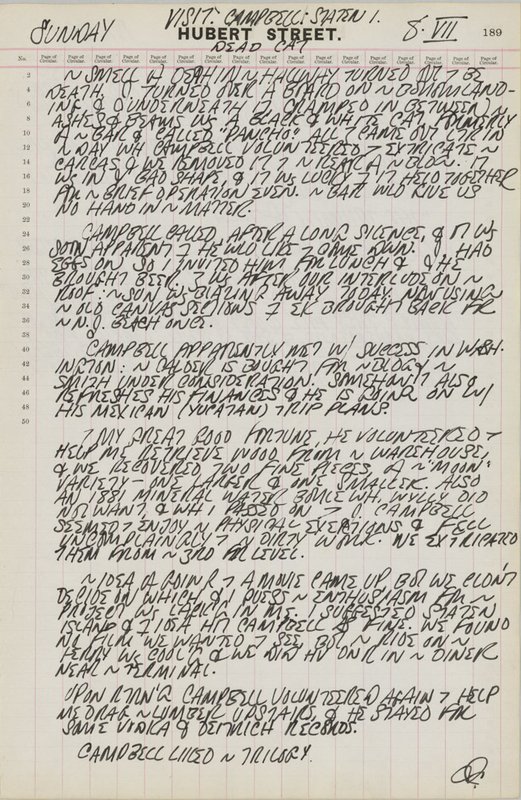 VISIT: CAMPBELL: STATEN I.
SUNDAY HUBERT STREET. 8. VII 189
DEAD CAT
No. Page of Circular. Page of Circular. Page of Circular. Page of Circular. Page of Circular. Page of Circular. Page of Circular. Page of Circular. Page of Circular. Page of Circular. Page of Circular.
2 ~ SMELL OF DEATH IN ~ HALLWAY TURNED OUT 7 BE
4 DEATH. I TURNED OVER A BOARD ON ~ BOTTOM LAND-
6 ING & UNDERNEATH CRAMPED IN BETWEEN ~
8 ASHES & BEAMS WS A BLACK & WHITE CAT FORMERLY
10 OF ~ BAR & CALLED "PANCHO". ALL CAME OUT IN
12 ~ DAY WH CAMPBELL VOLUNTEERED 7 EXTRICATE ~
14 CARCAS & WE REMOVED IT 7 ~ REAR OF ~ BLDG. IT
16 WS IN BAD SHAPE, & IT WS LUCKY IT HELD TOGETHER
18 FR ~ BRIEF OPERATION EVEN. ~ BAR WLD GIVE US
20 NO HAND IN ~ MATTER.
22
24 CAMPBELL CALLED, AFTER A LONG SILENCE, & IT WS
26 SOON APPARENT HE WLD LIKE 7 COME DOWN. I HAD
28 EGGS ON SO I INVITED HIM FR LUNCH & HE
30 BROUGHT BEER. WS AFTER OUR INTERLUDE ON ~
32 ROOF. ~ SUN WS BLAZING AWAY TODAY. NOW USING
34 ~ OLD CANVAS SECTIONS EK BROUGHT BACK FR
36 ~ N.J. BEACH ONCE.
38
40 CAMPBELL APPARENTLY MET W/ SUCCESS IN WASH-
42 INGTON: ~ CALDER IS BOUGHT FR ~ BLDG & ~
44 SMITH UNDER CONSIDERATION. SOMEHOW IT ALSO
46 REFRESHES HIS FINANCES & HE IS GOING ON W/
48 HIS MEXICAN (YUCATAN) TRIP PLANS.
50
7 MY GREAT GOOD FORTUNE, HE VOLUNTEERED 7
HELP ME RETRIEVE WOOD FROM ~ WAREHOUSE,
& WE RECOVERED TWO FINE PIECES, OF ~ "MOON"
VARIETY - ONE LARGER & ONE SMALLER. ALSO
AN 1881 MINERAL WATER BOTTLE WH. WYLLY DID
NOT WANT & WH I PASSED ON 7 J. CAMPBELL
SEEMED 7 ENJOY ~ PHYSICAL EXERTIONS & FELL
UNCOMPLAININGLY 7 ~ DIRTY WORK. WE EXTRICATED
THEM FROM ~ 3RD FR LEVEL.

~ IDEA OF GOING 7 A MOVIE CAME UP, BUT WE CLDN'T
DECIDE ON WHICH & I GUESS ~ ENTHUSIASM FR ~
PROJECT WS LACKING IN ME. I SUGGESTED STATEN
ISLAND & IDEA HIT CAMPBELL FINE. WE FOUND
NO FILM WE WANTED 7 SEE BUT ~ RIDE ON ~
FERRY WS COOL & WE DID HV DNR IN ~ DINER
NEAR ~ TERMINAL.

UPON RTRN'G CAMPBELL VOLUNTEERED AGAIN 7 HELP
ME DRAG ~ LUMBER UPSTAIRS, & HE STAYED FR
SOME VODKA & DIETRICH RECORDS.

CAMPBELL LIKED ~ TRILOGY.